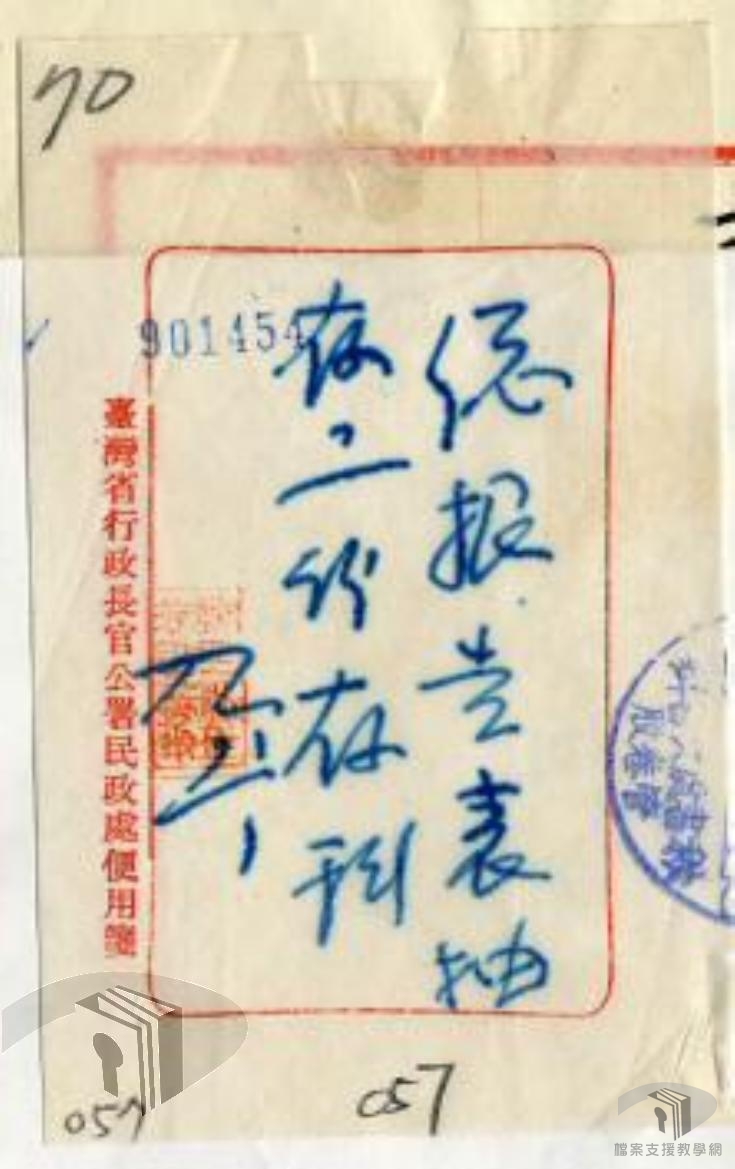 70
総报告表抽
存二份存科
901454
臺灣省行政長官公署民政處便用箋
057
057
檔案支援教學網